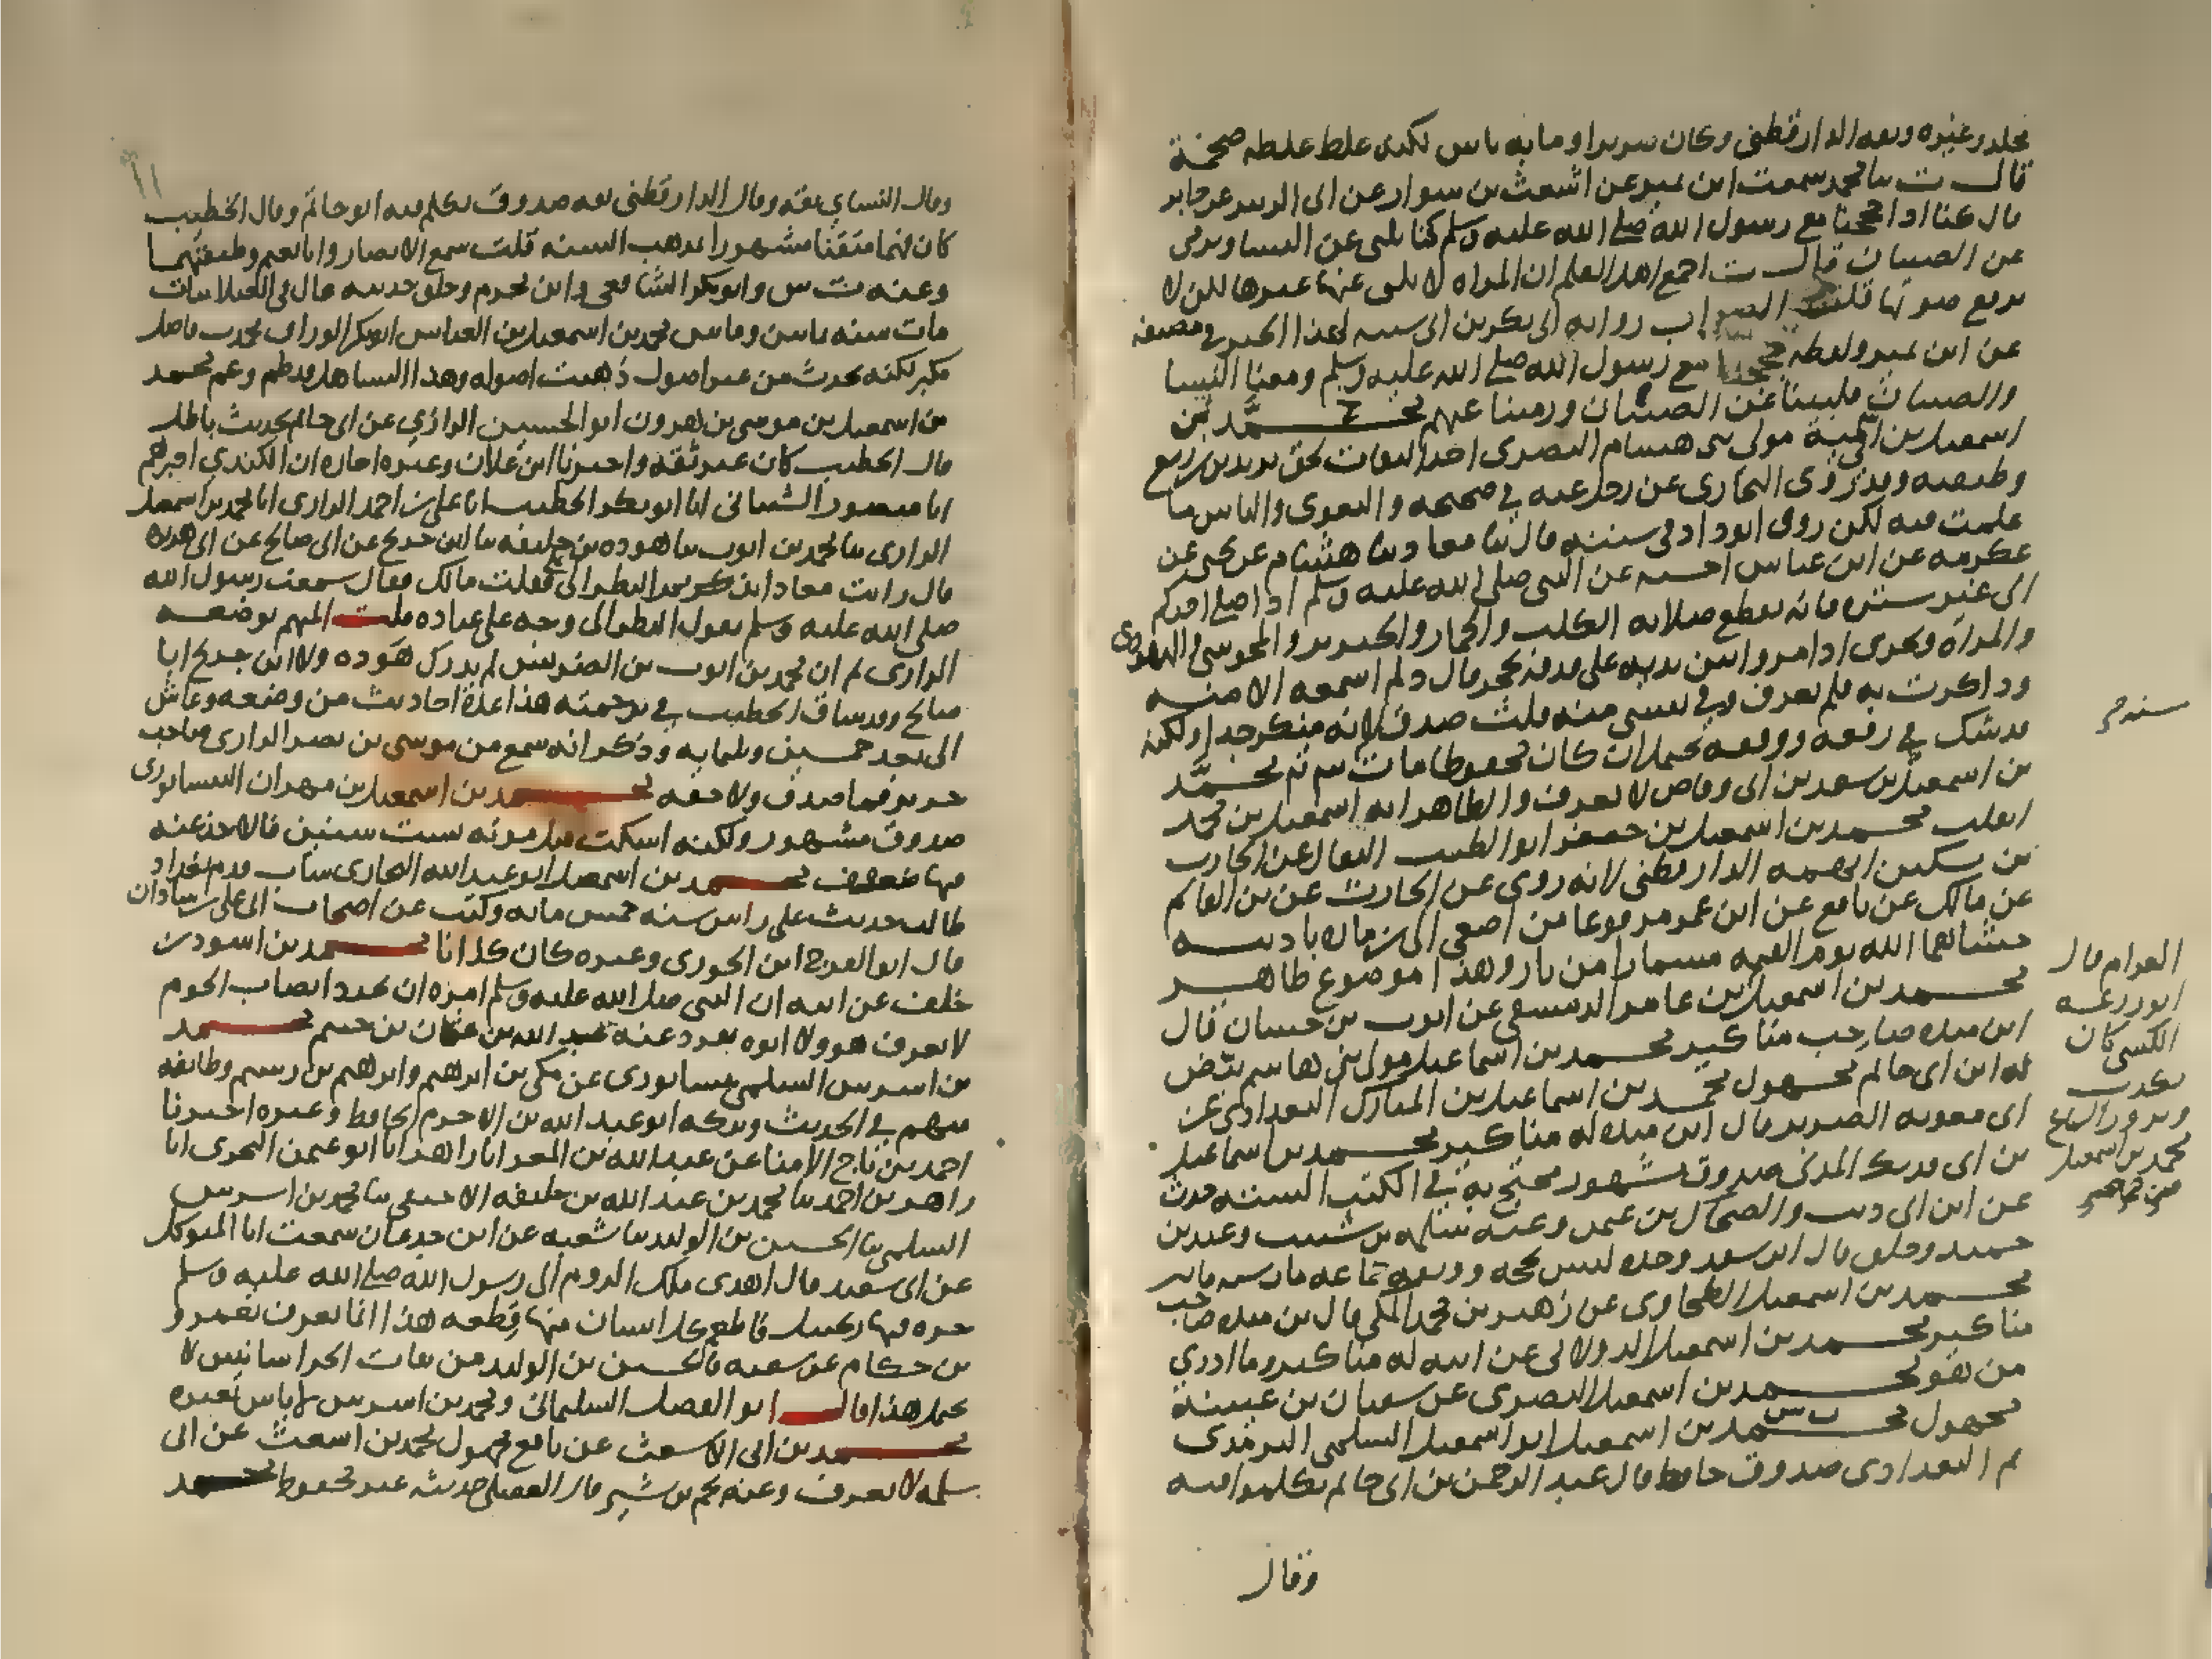 مخلد وغيره وثقه الدارقطني وكان سريرا وما به باس لكنه غلط غلطة ضخمة
قال ت نا محمد سمعت ابن نمير عن اشعث بن سوار عن ابي الزبير عن جابر
قال كنا اذا حججنا مع رسول الله صلى الله عليه وسلم كنا نلبي عن النسا ونرمي
عن الصبيان قال ت اجمع اهل العلم ان المراة لا يلبي عنها غيرها لكن لا
ترفع صوتها قلت الصواب رواية ابي بكر بن ابي شيبه لهذا الخبر في مصنفه
عن ابن نمير ولفظه حججنا مع رسول الله صلى الله عليه وسلم ومعنا النسا
والصبيان فلبينا عن الصبيان ورمينا عنهم محمد بن
اسمعيل بن ابي سمينة مولى بني هاشم البصري احد الثقات لحق يزيد بن زريع
وطبقته وقد روى البخاري عن رجل عنه في صحيحه والبغوي والناس ما
علمت فيه لكن روى ابو داود في سننه قال نا معاذ نا هشام عن يحيى عن
عكرمه عن ابن عباس احسبه عن النبي صلى الله عليه وسلم اذا صلى احدكم
الى غير سترة فانه يقطع صلاته الكلب والحمار والخنزير والمجوسي واليهودي
والمراة ويجزي اذا مروا بين يديه على قدفة بحجر قال د لم اسمعه الا منه
وذاكرت به فلم يعرف وفي نفسي منه قلت صدق لانه منكر جدا ولكنه
قد شك في رفعه ووقفه محتمل ان كان محفوظا مات محمد
بن اسمعيل بن سعد بن ابي وقاص لا يعرف والظاهر انه اسمعيل بن محمد
انقلب محمد بن اسمعيل بن جعفر ابو الطيب البقال عن الحارث
بن مسكين اتهمه الدارقطني لانه روى عن الحارث عن بن القاسم
عن مالك عن نافع عن ابن عمر مرفوعا من اصغى الى زمارة باذنيه
حشاهما الله يوم القيمه مسمارا من نار وهذا موضوع ظاهر
محمد بن اسمعيل بن عامر الدمشقي عن ايوب بن حسان قال
ابن منده صاحب مناكير محمد بن اسماعيل مولى بني هاشم بيض
له ابن ابي حاتم مجهول محمد بن اسماعيل بن المبارك البغدادي عن
ابي معوية الضرير قال ابن منده له مناكير محمد بن اسماعيل
بن ابي فديك المدني صدوق مشهور محتج به في الكتب الستة حدث
عن ابن ابي ذئب والضحاك بن عثمن وعنه سلمه بن شبيب وعبد بن
حميد وخلق قال ابن سعد وحده ليس بحجه ووثقه جماعه مات سنه مايتين
محمد بن اسمعيل الطحاوي عن زهير بن محمد المكي قال بن منده صاحب
مناكير محمد بن اسمعيل الدولابي عن ابيه له مناكير وما ادري
من هو محمد بن اسمعيل البصري عن سفيان بن عيينة
مجهول محمد بن اسمعيل ابو اسمعيل السلمي الترمذي
ثم البغدادي صدوق حافظ قال عبد الرحمن بن ابي حاتم تكلموا فيه
وقال
العوام قال
ابو زرعه
الكشي كان
يحدث
محمد بن اسمعيل
وقال النسائي ثقه وقال الدارقطني ثقه صدوق تكلم فيه ابو حاتم وقال الخطيب
كان فهما متقنا مشهورا بمذهب السنه قلت سمع الانصاري وابا نعيم وطبقتهما
وعنه ت س وابو بكر الشافعي وابن محرم وخلق
مات سنه ثمانين ومايتين محمد بن اسمعيل بن العباس ابو بكر الوراق محدث فاضل
مكثر لكنه يحدث من غير اصول ذهبت اصوله وهذا التساهل قد طم وعم محمد
بن اسمعيل بن موسى بن هرون ابو الحسين الرازي عن ابي حاتم بحديث باطل
قال الخطيب كان غير ثقه واخبرنا ابن علان وغيره اجازة ان الكندي اخبرهم
انا منصور الشيباني انا ابو بكر الخطيب انا علي بن احمد الرازي انا محمد بن اسمعيل
الرازي نا محمد بن ايوب نا هوذه بن خليفه نا ابن جريج عن ابي صالح عن ابي هريرة
قال رايت معاذا يديم النظر الى علي فقلت مالك فقال سمعت رسول الله
صلى الله عليه وسلم يقول النظر الى وجه علي عباده قلت المتهم بوضعه
الرازي ثم ان محمد بن ايوب بن الضريس لم يدرك هوذه ولا ابن جريج ابا
صالح وقد ساق الخطيب في ترجمته هذا عدة احاديث من وضعه وعاش
الى بعد خمسين وثلثمايه وذكر انه سمع من موسى بن نصر الرازي صاحب
جرير فما صدق ولا ثقه محمد بن اسمعيل بن مهران النيسابوري
صدوق مشهور ولكنه اسكت قبل موته ست سنين فالاخذ عنه
فيها ضعف محمد بن اسمعيل ابو عبد الله البخاري شاب قدم بغداد
طالب حديث على راس سنه خمس مائه وكتب عن اصحاب ابي علي بن شاذان
قال ابو الفرج ابن الجوزي وغيره كان كذابا محمد بن اسود بن
خلف عن ابيه ان النبي صلى الله عليه وسلم امره ان يجدد انصاب الحرم
لا يعرف هو ولا ابوه تفرد عنه عبد الله بن عثمان بن خثيم محمد
بن اشرس السلمي نيسابوري عن مكي بن ابرهيم وابرهيم بن رستم وطائفه
متهم في الحديث وتركه ابو عبد الله بن الاخرم الحافظ وغيره اخبرنا
احمد بن تاج الامنا عن عبد المعز انا زاهر انا ابو عثمن البحري انا
زاهر بن احمد نا محمد بن عبد الله بن خليفه نا محمد بن اشرس
السلمي نا الحسين بن الوليد نا شعبه عن ابن جدعان سمعت ابا المتوكل
عن ابي سعيد قال اهدى ملك الروم الى رسول الله صلى الله عليه وسلم
جره فيها زنجبيل فاطعم كل انسان منها قطعه هذا انما يعرف بعمرو
بن حكام عن شعبه فالحسين بن الوليد من ثقات الخراسانيين لا
يحتمل هذا قال ابو الفضل السليماني ومحمد بن اشرس لا باس بغيره
محمد بن ابي الاشعث عن نافع مجهول محمد بن اشعث عن ابي
سلمه لا يعرف وعنه محمد بن بشير قال العقيلي حديثه غير محفوظ محمد